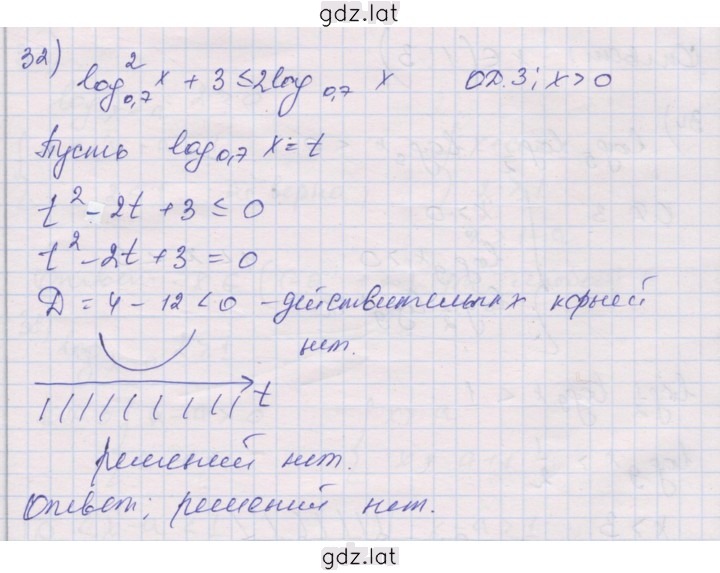 gdz.lat
32)
log²₀,₇ x + 3 ≤ 2log₀,₇ x ОДЗ: x > 0
Пусть log₀,₇ x = t
t² - 2t + 3 ≤ 0
t² - 2t + 3 = 0
D = 4 - 12 < 0 - действительных корней
нет.
t
решений нет.
Ответ: решений нет.
gdz.lat